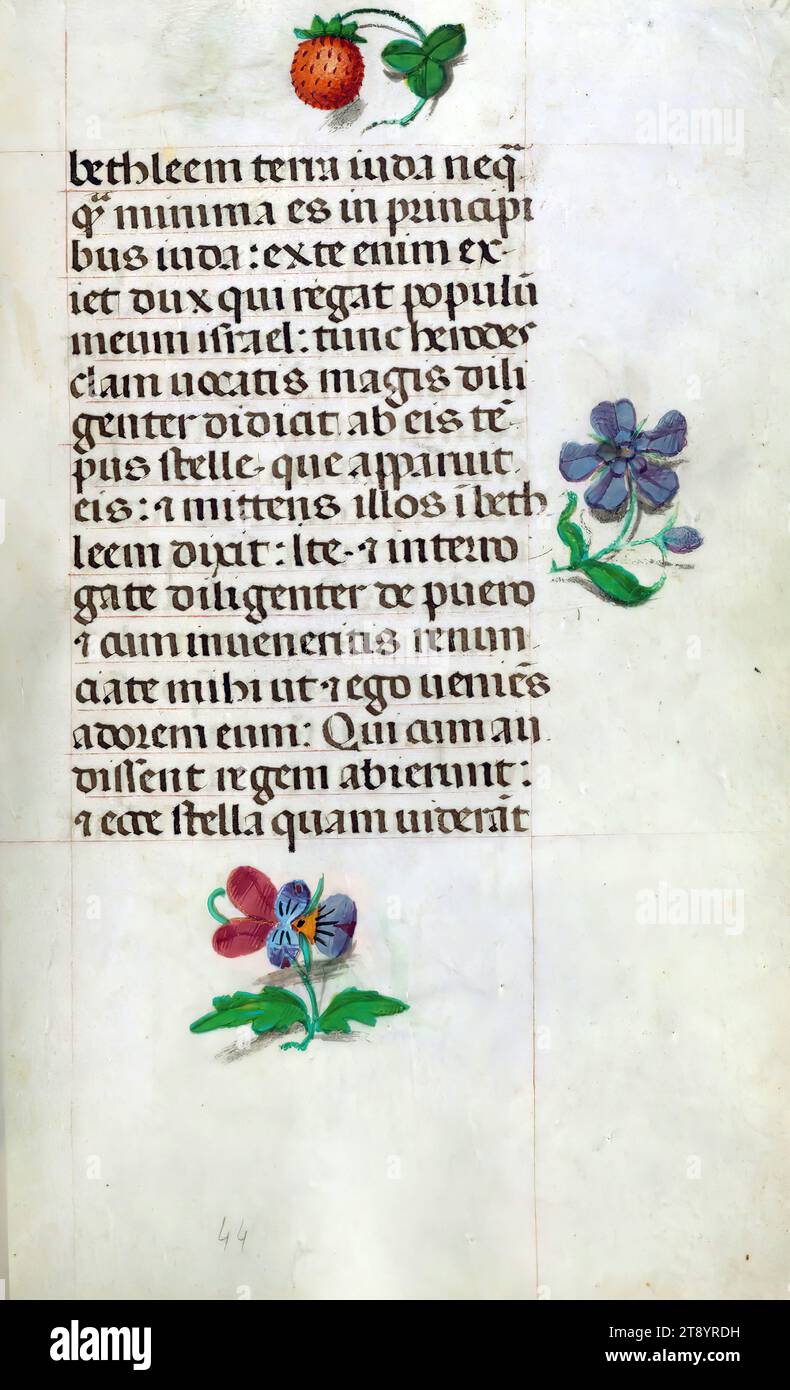 bethleem terra iuda neq̃
qᷓ minima es in principi
bus iuda : ex te enim ex-
iet dux qui regat populū
meum israel : tunc herodes
clam uocatis magis dili
genter didicit ab eis tē-
pus stelle que apparuit
eis : ⁊ mittens illos ī beth
leem dixit : Ite ⁊ interro
gate diligenter de puero
⁊ cum inueneritis renun-
ciate mihi ut ⁊ ego ueniēs
adorem eum : Qui cum au
dissent regem abierunt :
⁊ ecce stella quam uiderāt
44
alamy
alamy
alamy
a
a
a
alamy
Image ID: 2T8YRDH
www.alamy.com